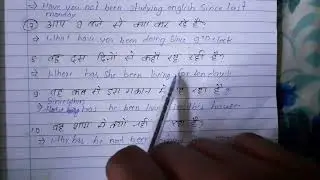 → How you not been studying english since last monday
7 आप 9 बजे से क्या कर रहे हैं?
→ What have you been doing since 9 o'clock
8 वह दस दिनों से कहाँ रह रही है?
→ Where has she been living for ten days
9 वह कब से इस मकान में रह रहा है?
has he been living in this house
10. वह शाम से क्यों नहीं रहा है?
→ Why has he not been